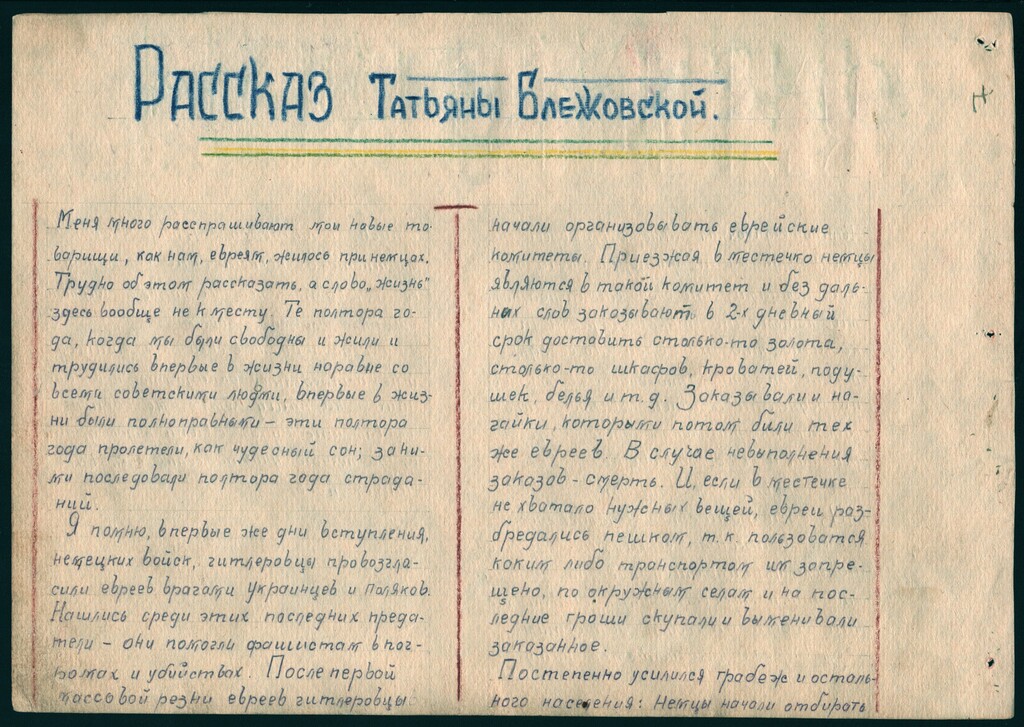 Рассказ Татьяны Блежовской.
Меня много расспрашивают мои новые то-
варищи, как нам, евреям, жилось при немцах.
Трудно об этом рассказать, а слово „жизнь"
здесь вообще не к месту. Те полтора го-
да, когда мы были свободны и жили и
трудились впервые в жизни наравне со
всеми советскими людми, впервые в жиз-
ни были полноправными – эти полтора
года пролетели, как чудесный сон; за ни-
ми последовали полтора года страда-
ний.
Я помню, в первые же дни вступления,
немецких войск, гитлеровцы провозгла-
сили евреев врагами Украинцев и Поляков.
Нашлись среди этих последних преда-
тели – они помогли фашистам в пог-
ромах и убийствах. После первой
массовой резни евреев гитлеровцы
начали организовывать еврейские
комитеты. Приезжая в местечко немцы
являются в такой комитет и без даль-
них слов заказывают в 2-х дневный
срок доставить столько-то золота,
столько-то шкафов, кроватей, поду-
шек, белья и т.д. Заказывали и на-
гайки, которыми потом били тех
же евреев. В случае невыполнения
заказов – смерть. И, если в местечке
не хватало нужных вещей, евреи раз-
бредались пешком, т.к. пользоватся
каким либо транспортом им запре-
щено, по окружным селам и на пос-
ледние гроши скупали и выменивали
заказанное.
Постепенно усилился грабеж и осталь-
ного населения: Немцы начали отбирать